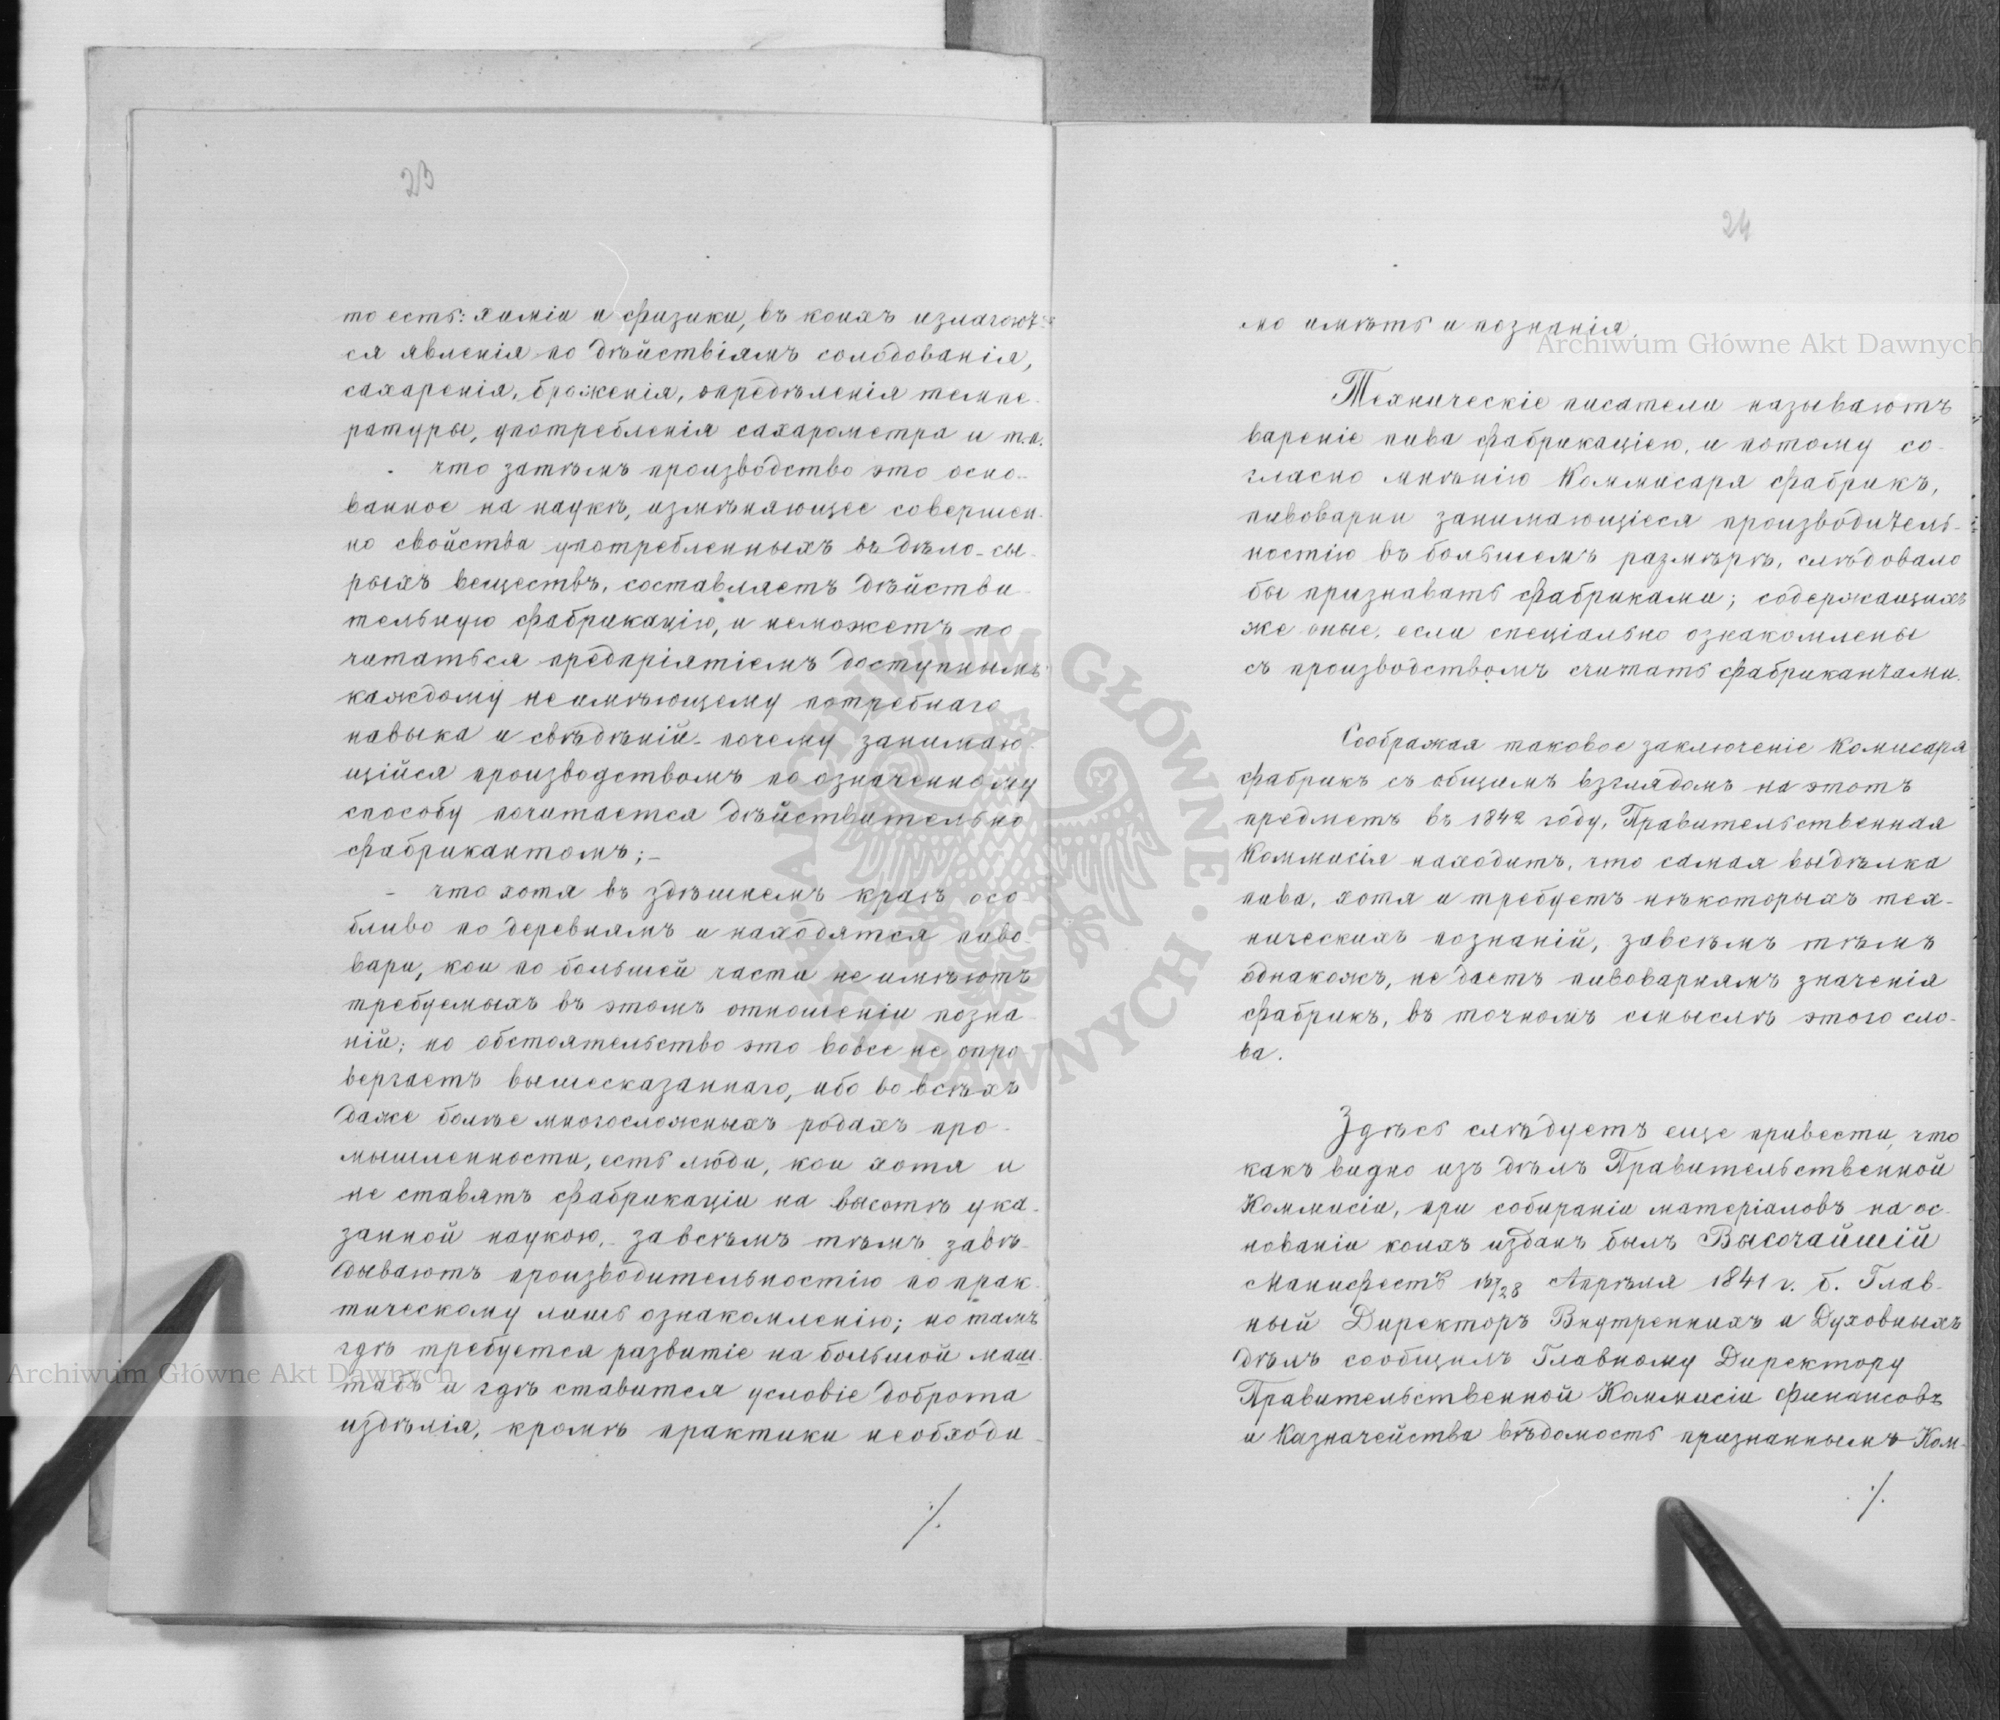 23
то есть: химіи и физики, въ коихъ излагают-
ся явленія по дѣйствіямъ солодованія,
сахаренія, броженія, опредѣленія темпе-
ратуры, употребленія сахарометра и т.п.
- что затѣмъ производство это осно-
ванное на наукѣ, измѣняющее совершен-
но свойства употребленныхъ въ дѣло сы-
рыхъ веществъ, составляетъ дѣйстви-
тельную фабрикацію, и неможетъ по
читаться предпріятіемъ доступнымъ
каждому неимѣющему потребнаго
навыка и свѣдѣній - почему занимаю-
щійся производствомъ по означенному
способу почитается дѣйствительно
фабрикантомъ; -
- что хотя въ здѣшнемъ краѣ осо-
бливо по деревнямъ и находятся пиво-
вари, кои по большей части не имѣютъ
требуемыхъ въ этомъ отношеніи позна-
ній; но обстоятельство это вовсе не опро
вергаетъ вышесказаннаго, ибо во всѣхъ
даже болѣе многосложныхъ родахъ про-
мышленности, есть люди, кои хотя и
не ставятъ фабрикаціи на высотѣ ука-
занной наукою, - завсѣмъ тѣмъ завѣ-
дываютъ производительностію по прак-
тическому лишь ознакомленію; но тамъ
гдѣ требуется развитіе на большой маш-
табъ и гдѣ ставится условіе доброта
издѣлія, кромѣ практики необходи
./.
24
мо имѣть и познанія.
Техническіе писатели называютъ
вареніе пива фабрикаціею, и потому со-
гласно мнѣнію Коммисаря фабрикъ,
пивоварни занимающіеся производитель-
ностію въ большемъ размѣрѣ, слѣдовало
бы признавать фабриками; содержащихъ
же оные, если спеціально ознакомлены
съ производствомъ считать фабрикантами.
Соображая таковое заключеніе Комисаря
фабрикъ съ общимъ взглядомъ на этотъ
предметъ въ 1842 году, Правительственная
Коммисія находитъ, что самая выдѣлка
пива, хотя и требуетъ нѣкоторыхъ тех-
ническихъ познаній, завсѣмъ тѣмъ
однакожъ, не даетъ пивоварнямъ значенія
фабрикъ, въ точномъ смыслѣ этого сло-
ва.
Здѣсь слѣдуетъ еще привести, что
какъ видно изъ дѣлъ Правительственной
Коммисіи, при собираніи матеріаловъ на ос-
нованіи коихъ изданъ былъ Высочайшій
Манифестъ 16/28 Апрѣля 1841 г. б. Глав-
ный Директоръ Внутреннихъ и Духовныхъ
дѣлъ сообщилъ Главному Директору
Правительственной Коммисіи Финансовъ
и Казначейства вѣдомость признаннымъ Ком-
./.
Archiwum Główne Akt Dawnych
Archiwum Główne Akt Dawnych
ARCHIWUM GŁÓWNE · AKT DAWNYCH ·